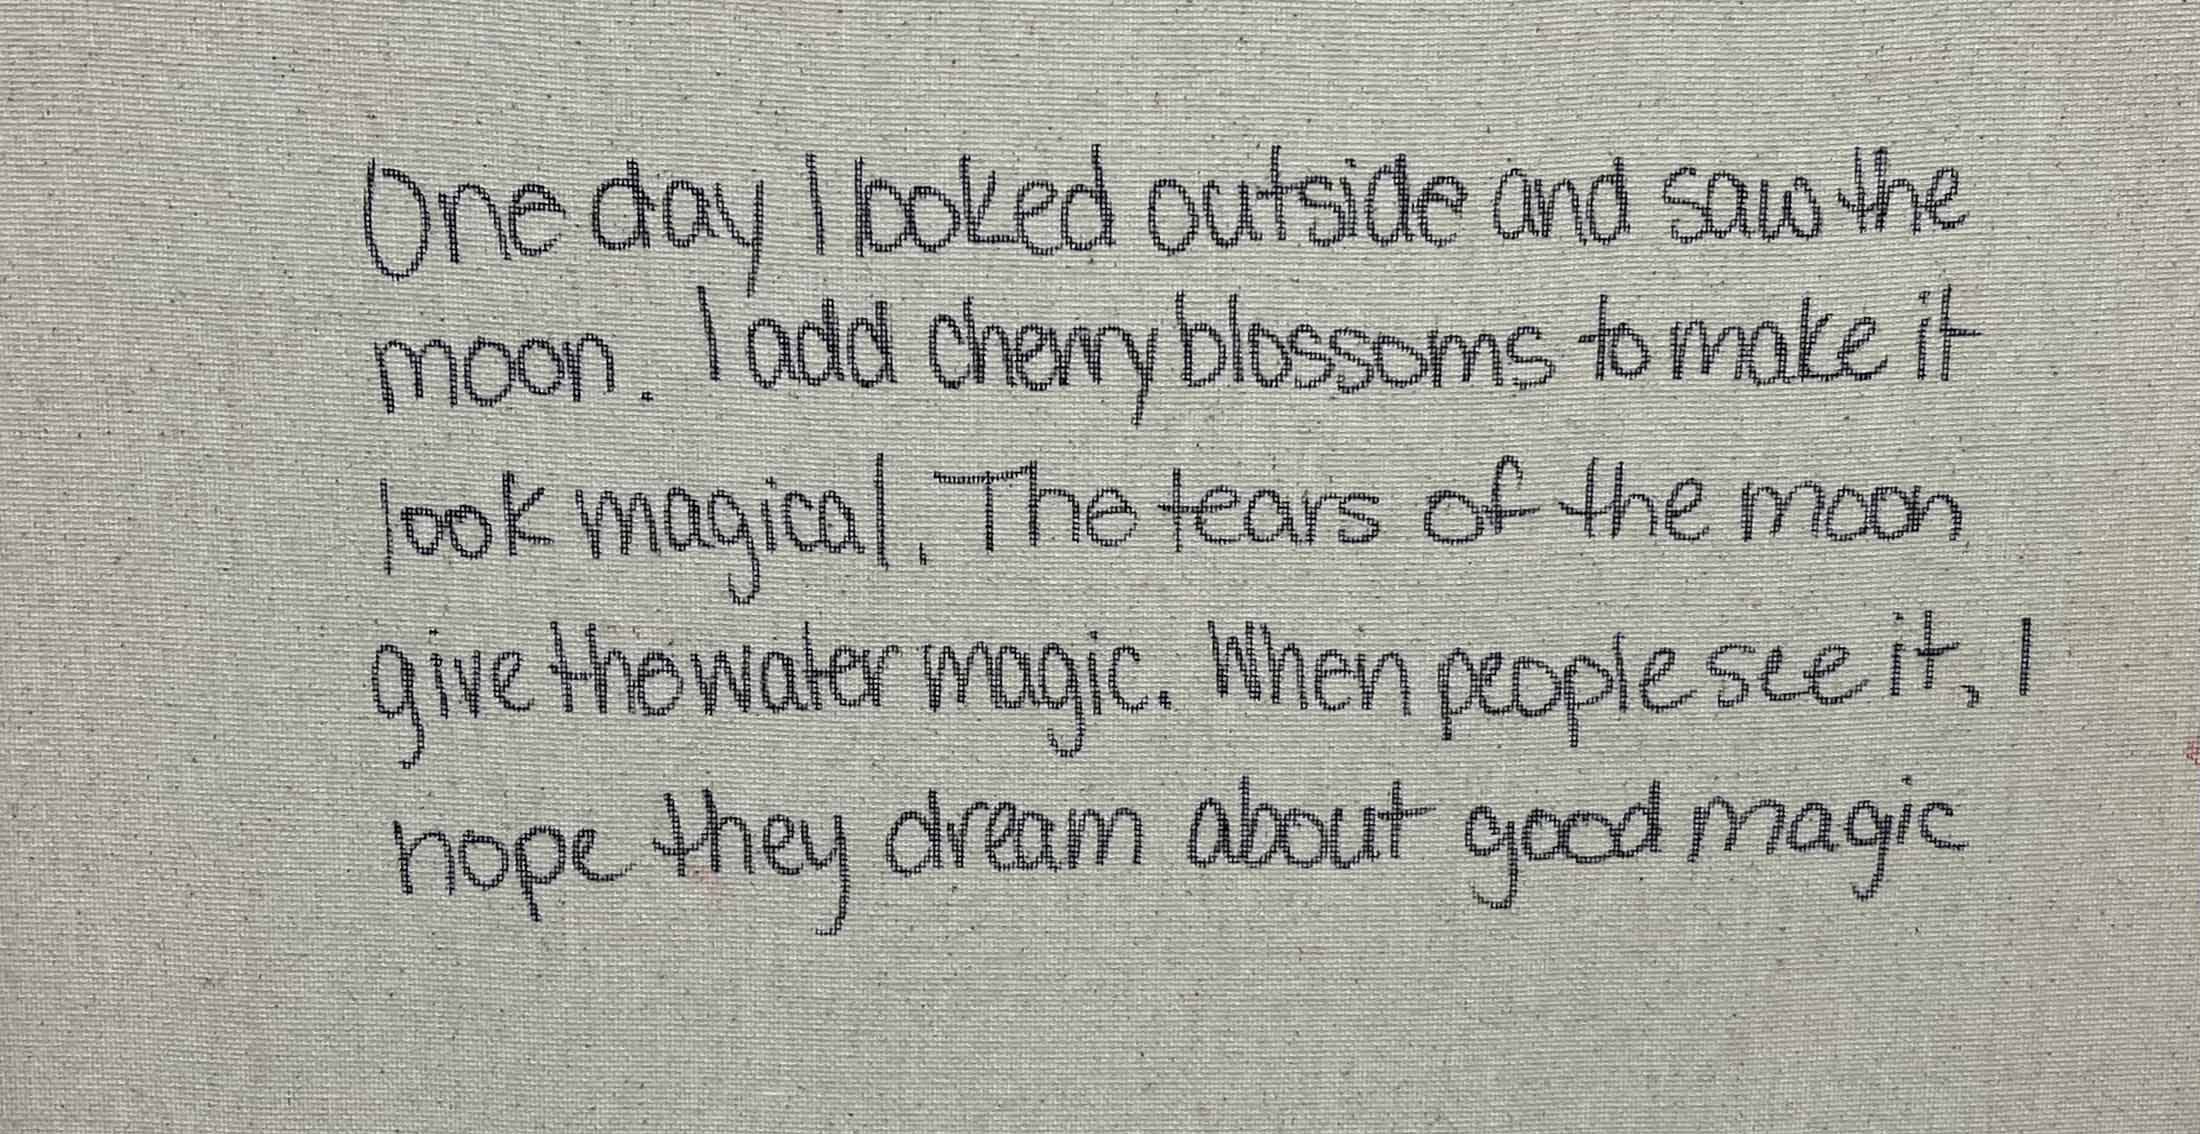 One day I looked outside and saw the
moon. I add cherry blossoms to make it
look magical. The tears of the moon
give the water magic. When people see it, I
hope they dream about good magic